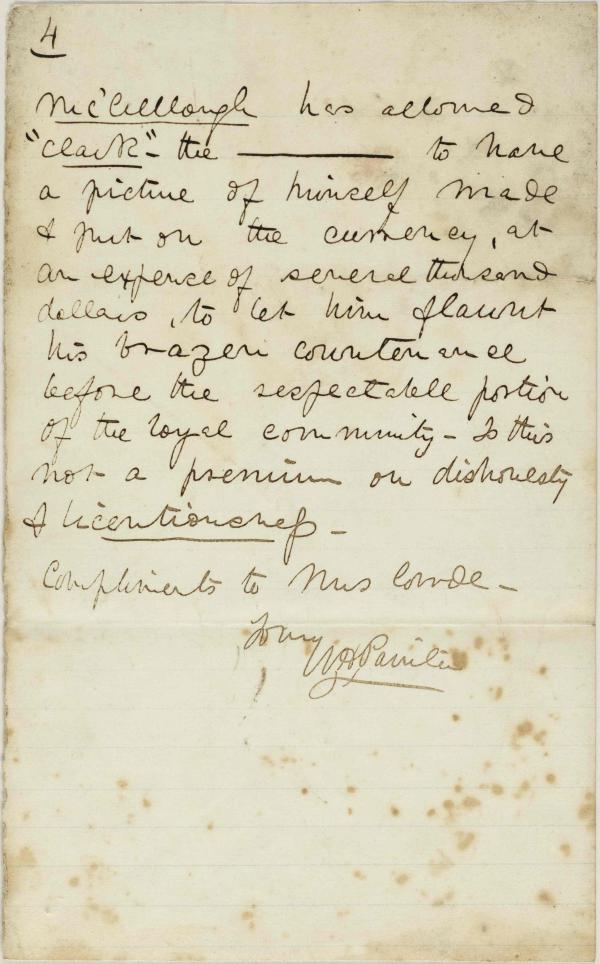 4
McCullough has allowed
"Clark" - the ——— to have
a picture of himself made
& put on the currency, at
an expence of several thousand
dollars, to let him flaunt
his brazen countenance
before the respectable portion
of the loyal community - Is this
not a premium on dishonesty
& licentiousness -
Compliments to Mrs